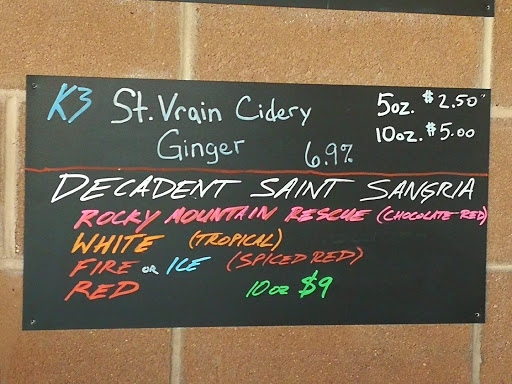 K3 St. Vrain Cidery 5oz. $2.50
Ginger 6.9% 10oz. $5.00
DECADENT SAINT SANGRIA
ROCKY MOUNTAIN RESCUE (CHOCOLATE RED)
WHITE (TROPICAL)
FIRE OR ICE (SPICED RED)
RED 10oz $9